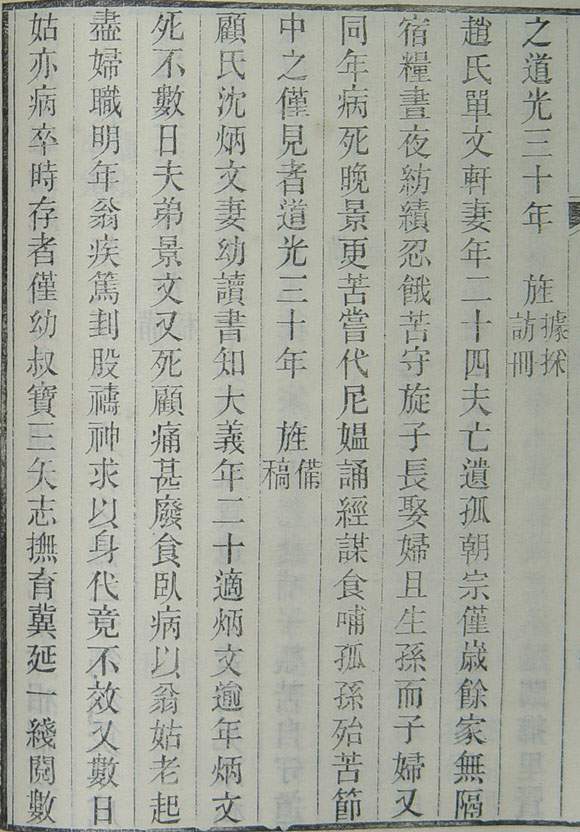 之道光三十年　旌據採訪冊
趙氏單文軒妻年二十四夫亡遺孤朝宗僅歲餘家無隔
宿糧晝夜紡績忍餓苦守旋子長娶婦且生孫而子婦又
同年病死晚景更苦嘗代尼媼誦經謀食哺孤孫殆苦節
中之僅見者道光三十年　旌備稿
顧氏沈炳文妻幼讀書知大義年二十適炳文逾年炳文
死不數日夫弟景文又死顧痛甚廢食臥病以翁姑老起
盡婦職明年翁疾篤刲股禱神求以身代竟不效又數日
姑亦病卒時存者僅幼叔寶三矢志撫育冀延一綫閱數